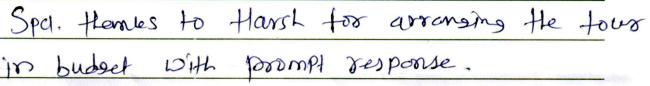 Spcl. thanks to Harsh for arranging the tour
in budget with prompt response.